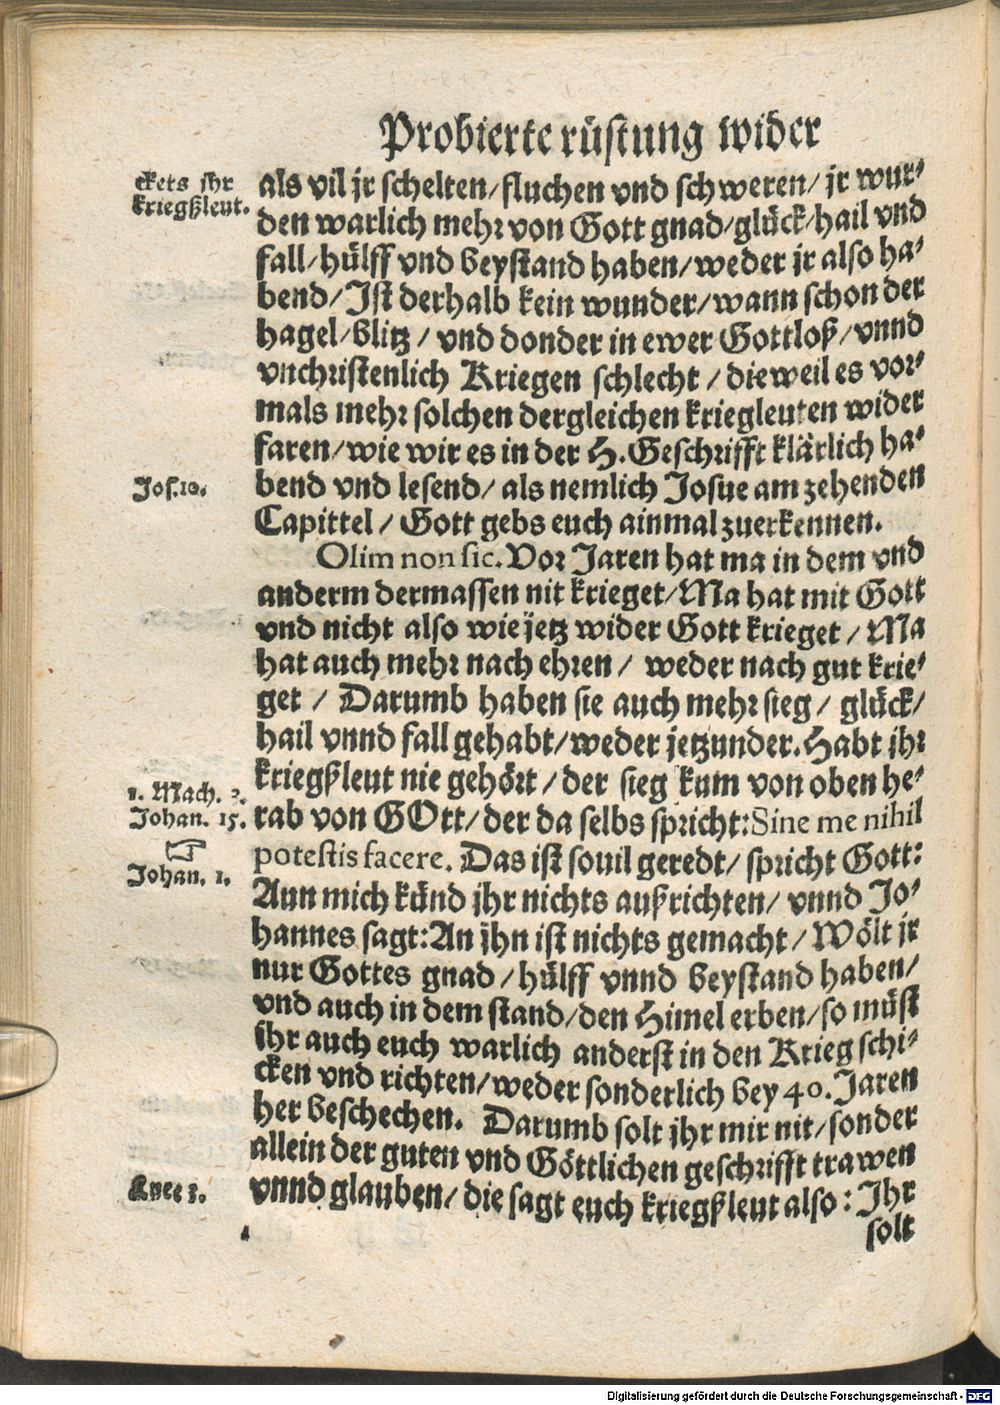 Probierte rüstung wider
ckets ihr
kriegßleut.
als vil jr schelten/fluchen vnd schweren/ jr wur-
den warlich mehr von Gott gnad/glück/hail vnd
fall/hülff vnd beystand haben/weder jr also ha-
bend/Ist derhalb kein wunder/wann schon der
hagel/blitz/ vnd donder in ewer Gottloß/vnnd
vnchristenlich Kriegen schlecht/dieweil es vor-
mals mehr solchen dergleichen kriegleuten wider
faren/wie wir es in der H.Geschrifft klärlich ha-
Jos.10.
bend vnd lesend/ als nemlich Josue am zehenden
Capittel/ Gott gebs euch ainmal zuerkennen.
Olim non sic. Vor Jaren hat ma in dem vnd
anderm dermassen nit krieget/Ma hat mit Gott
vnd nicht also wie jetz wider Gott krieget/ Ma
hat auch mehr nach ehren/ weder nach gut krie-
get/ Darumb haben sie auch mehr sieg/ glück/
hail vnnd fall gehabt/weder jetzunder. Habt ihr
kriegßleut nie gehört/ der sieg kum von oben he-
1. Mach. 3.
Johan. 15.
rab von GOtt/ der da selbs spricht: Sine me nihil
☞
Johan. 1.
potestis facere. Das ist souil geredt/ spricht Gott:
Aun mich künd ihr nichts außrichten/ vnnd Jo-
hannes sagt: An jhn ist nichts gemacht/ Wölt jr
nur Gottes gnad/ hülff vnnd beystand haben/
vnd auch in dem stand/den Himel erben/so müst
ihr auch euch warlich anderst in den Krieg schi-
cken vnd richten/weder sonderlich bey 40. Jaren
her beschechen. Darumb solt jhr mir nit/sonder
allein der guten vnd Göttlichen geschrifft trawen
Luce 3.
vnnd glauben/ die sagt euch kriegßleut also: Ihr
solt
Digitalisierung gefördert durch die Deutsche Forschungsgemeinschaft - DFG